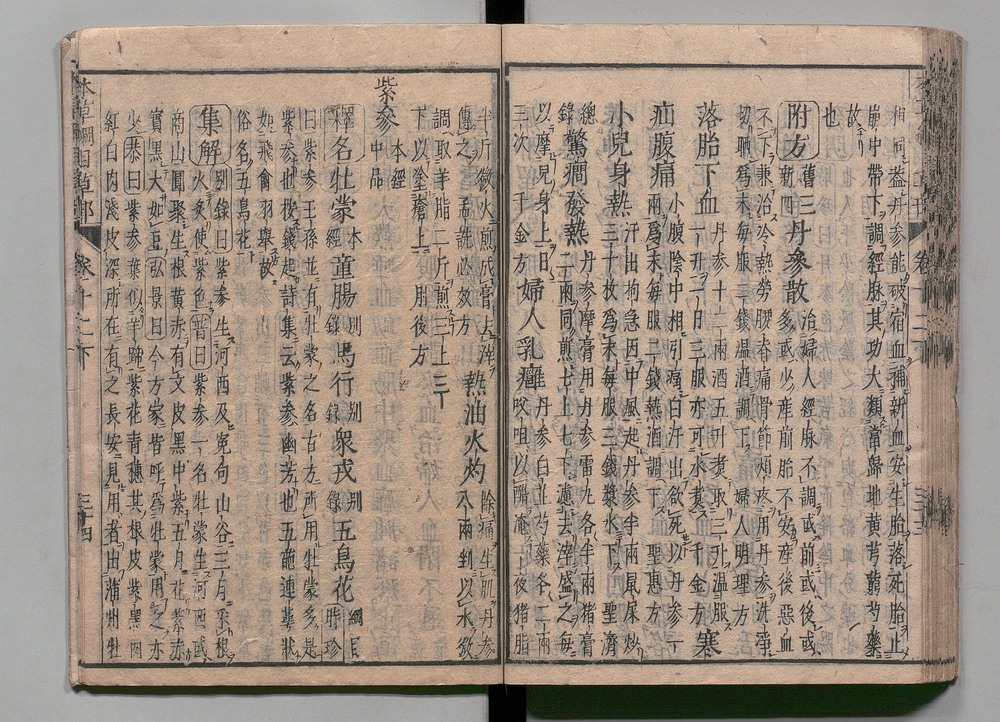 相同盖丹參能破宿血補新血安生胎落死胎止
崩中帶下調經脉其功大類當歸地黄芎藭芍藥
故
也
附方舊三新四丹參散治婦人經脉不調或前或後或多或少産前胎不安産後惡血
不下兼治冷熱勞腰脊痛骨節煩疼用丹參洗淨
切晒爲末每服二錢温酒調下婦人明理方
落胎下血丹參十二兩酒五升煑取三升温服一升一日三服亦可水煑千金方寒
疝腹痛小腹陰中相引痛白汗出欲死以丹參一兩爲末每服二錢熱酒調下聖惠方
小兒身熱汗出拘急因中風起丹參半兩鼠屎炒三十枚爲末每服三錢漿水下聖濟
總驚癇發熱丹參摩膏用丹參雷丸各半兩猪膏二兩同煎七上七下濾去滓盛之每
以摩兒身上日三次千金方婦人乳癰丹參白芷芍藥各二兩㕮咀以醋淹一夜猪脂
半斤微火煎成膏去滓傅之孟詵必效方熱油火灼除痛生肌丹參八兩剉以水微
調取羊脂二斤煎三上三
下以塗瘡上肘後方
紫參本經中品
釋名牡蒙本經童腸别錄馬行别錄衆戎别錄五鳥花綱目時珍
曰紫參王孫並有牡蒙之名古方所用牡蒙多是
紫參也按錢起詩集云紫參幽芳也五葩連萼狀
如飛禽羽舉故
俗名五鳥花
集解别錄曰紫參生河西及冤句山谷三月采根火炙使紫色普曰紫參一名牡蒙生河西或
商山圓聚生根黄赤有文皮黑中紫五月花紫赤
實黒大如豆弘景曰今方家皆呼爲牡蒙用之亦
少恭曰紫參葉似羊蹄紫花青穗其根皮紫黑肉
紅白肉淺皮深所在有之長安見用者出蒲州牡
本草綱目草部 卷十二下 三十四